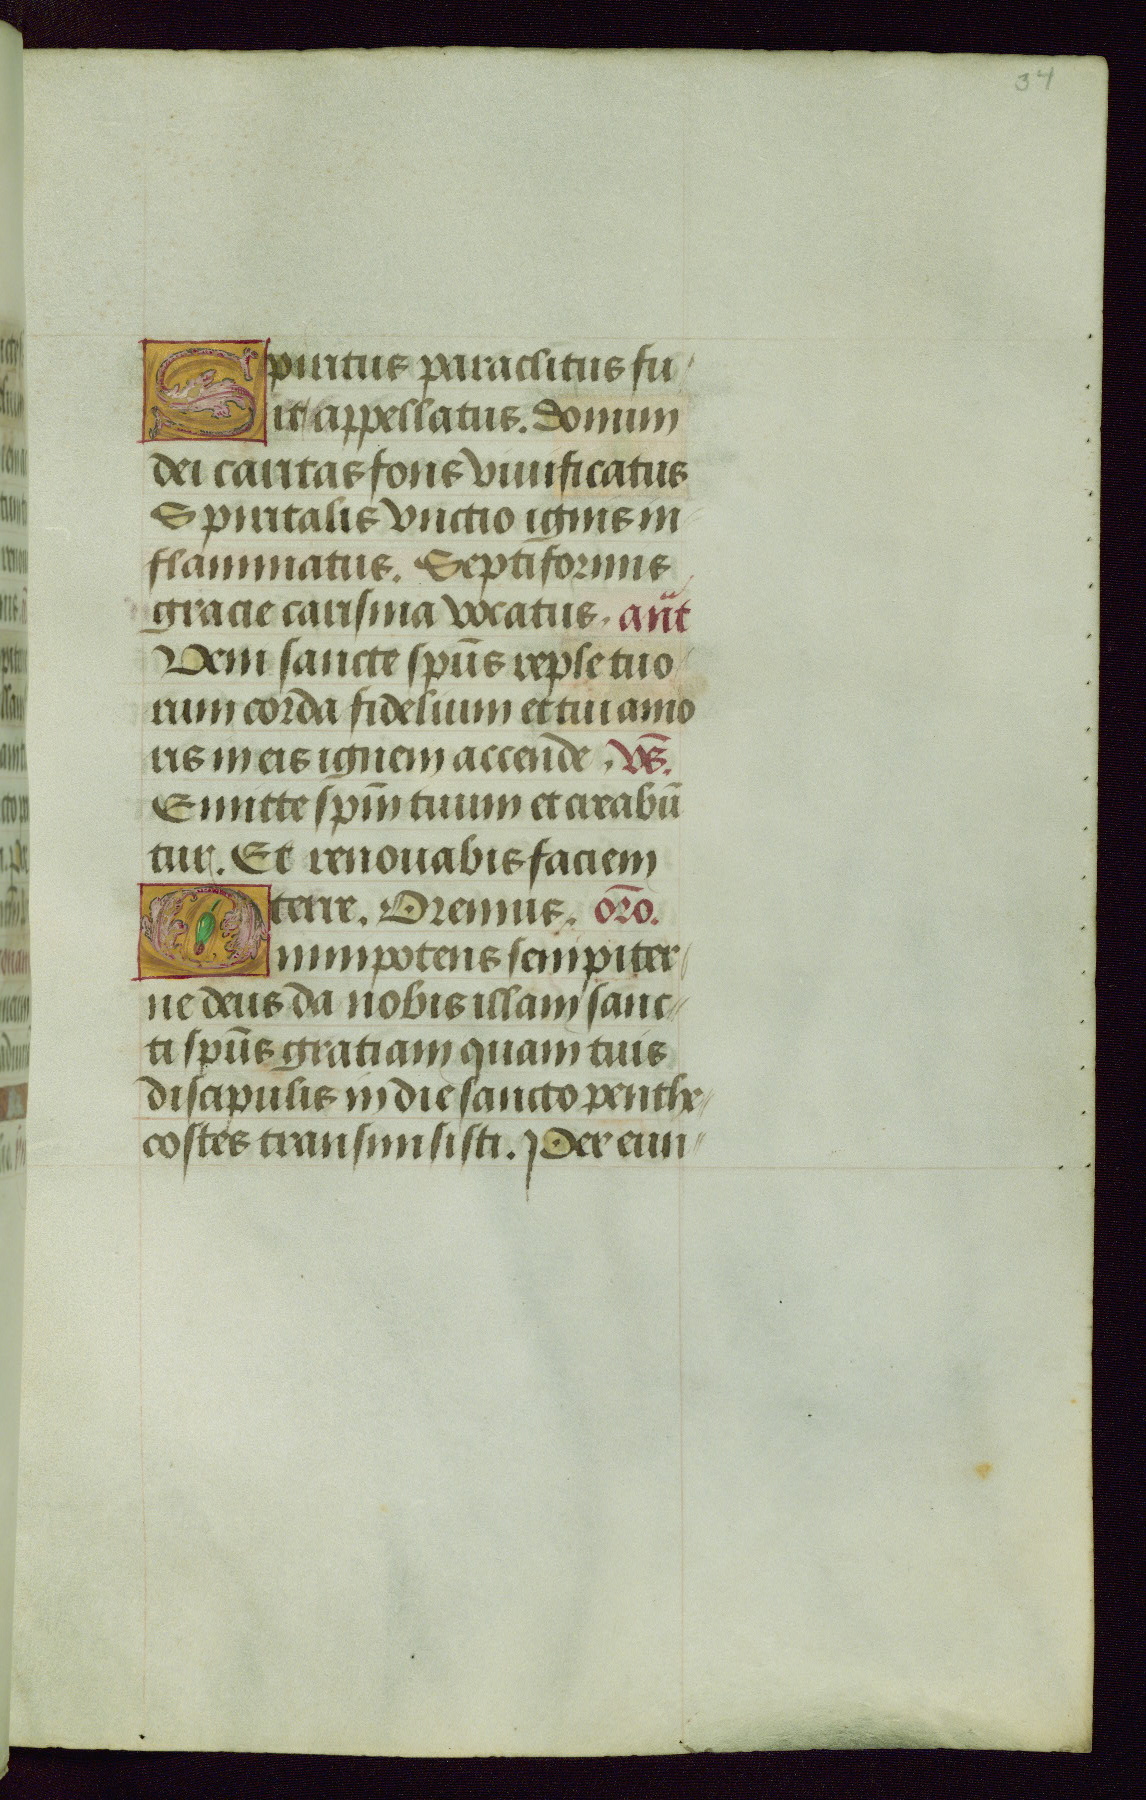 34
Spiritus paraclitus fu
it appellatus. Donum
dei caritas fons viuificatus
Spiritalis vnctio ignis in
flammatus. Septiformis
gracie carisma vocatus. an̄t
Veni sancte sp̄us reple tuo
rum corda fidelium et tui amo
ris in eis ignem accende. vs̄.
Emitte sp̄m tuum et creabū
tur. Et renouabis faciem
terre. Oremus. or̄o.
Omnipotens sempiter
ne deus da nobis illam sanc
ti sp̄us gratiam quam tuis
discipulis in die sancto penthe
costes transmisisti. Per eun